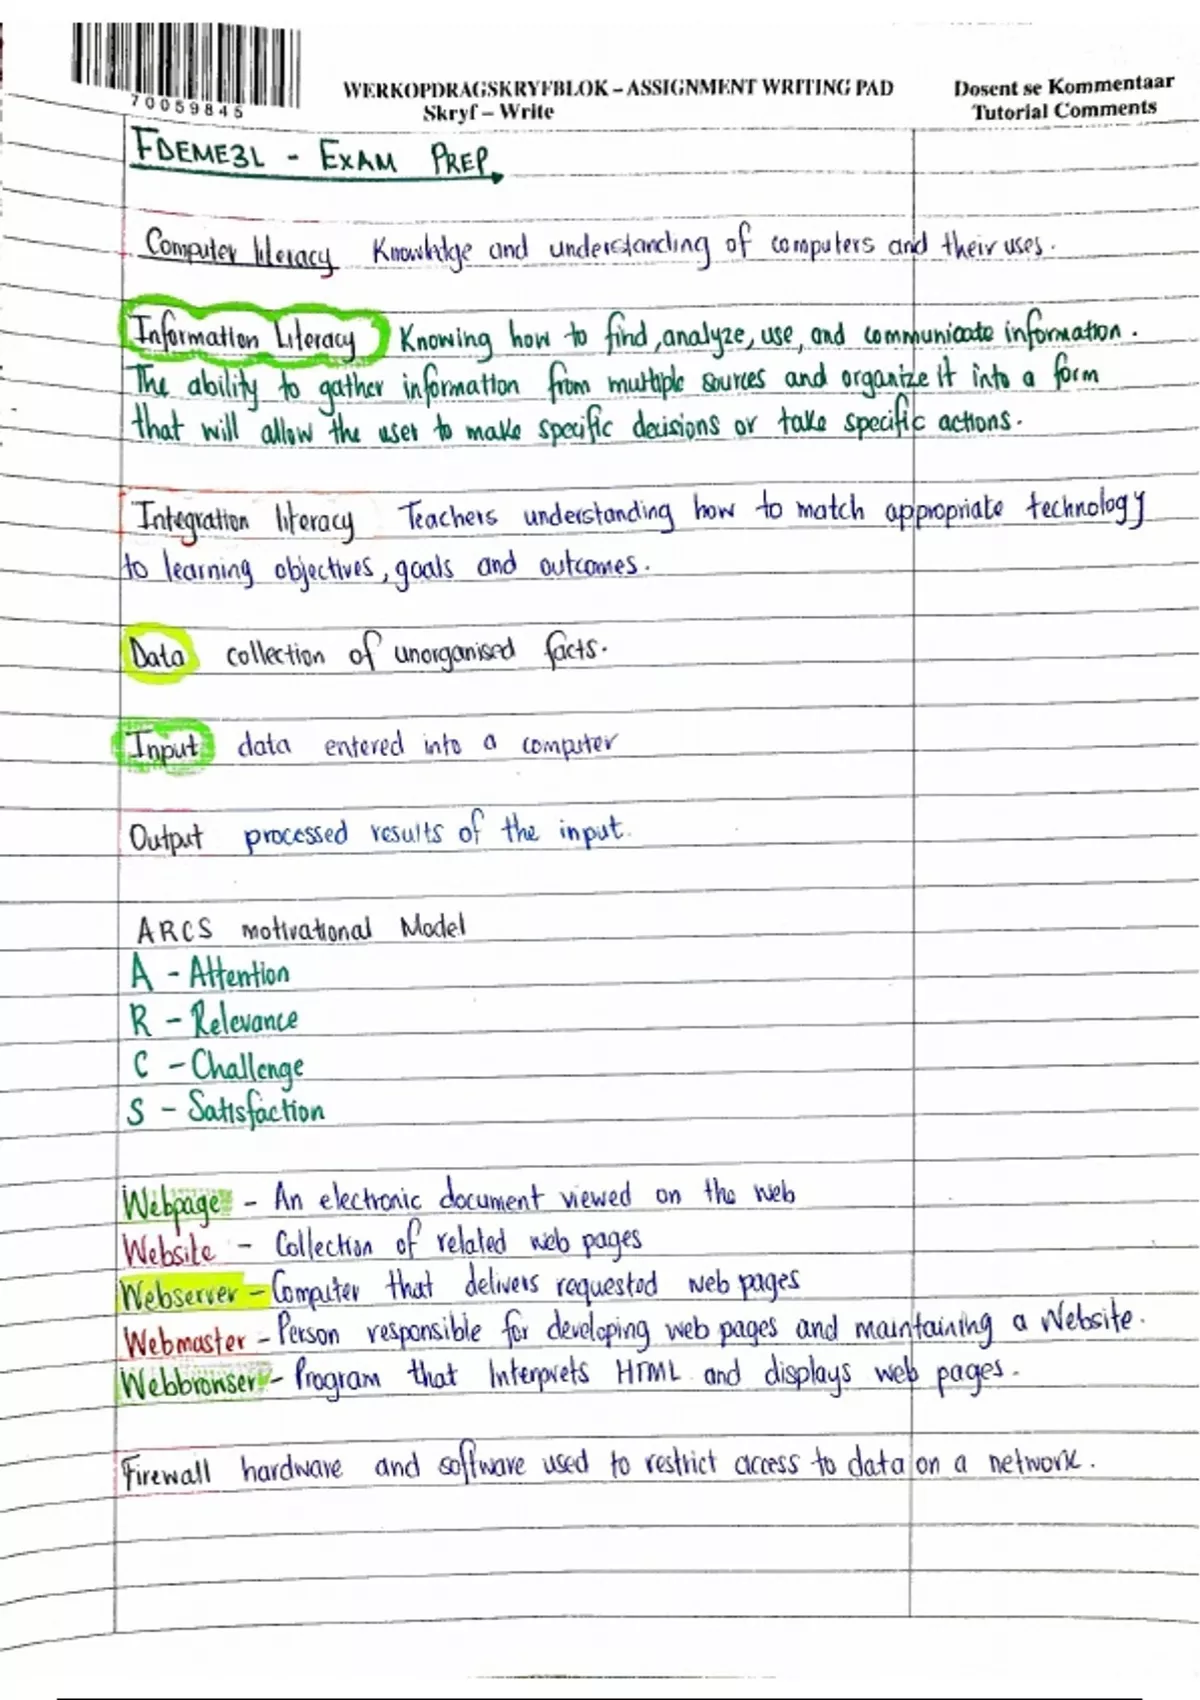 70059845
WERKOPDRAGSKRYFBLOK – ASSIGNMENT WRITING PAD
Skryf – Write
Dosent se Kommentaar
Tutorial Comments
FDEME3L - EXAM PREP
Computer literacy Knowledge and understanding of computers and their uses.
Information Literacy Knowing how to find, analyze, use, and communicate information.
The ability to gather information from multiple sources and organize it into a form
that will allow the user to make specific decisions or take specific actions.
Integration literacy Teachers understanding how to match appropriate technology
to learning objectives, goals and outcomes.
Data collection of unorganised facts.
Input data entered into a computer
Output processed results of the input.
ARCS motivational Model
A - Attention
R - Relevance
C - Challenge
S - Satisfaction
Webpage - An electronic document viewed on the web
Website - Collection of related web pages
Webserver - Computer that delivers requested web pages
Webmaster - Person responsible for developing web pages and maintaining a Website.
Webbrowser - Program that Interprets HTML and displays web pages.
Firewall hardware and software used to restrict access to data on a network.